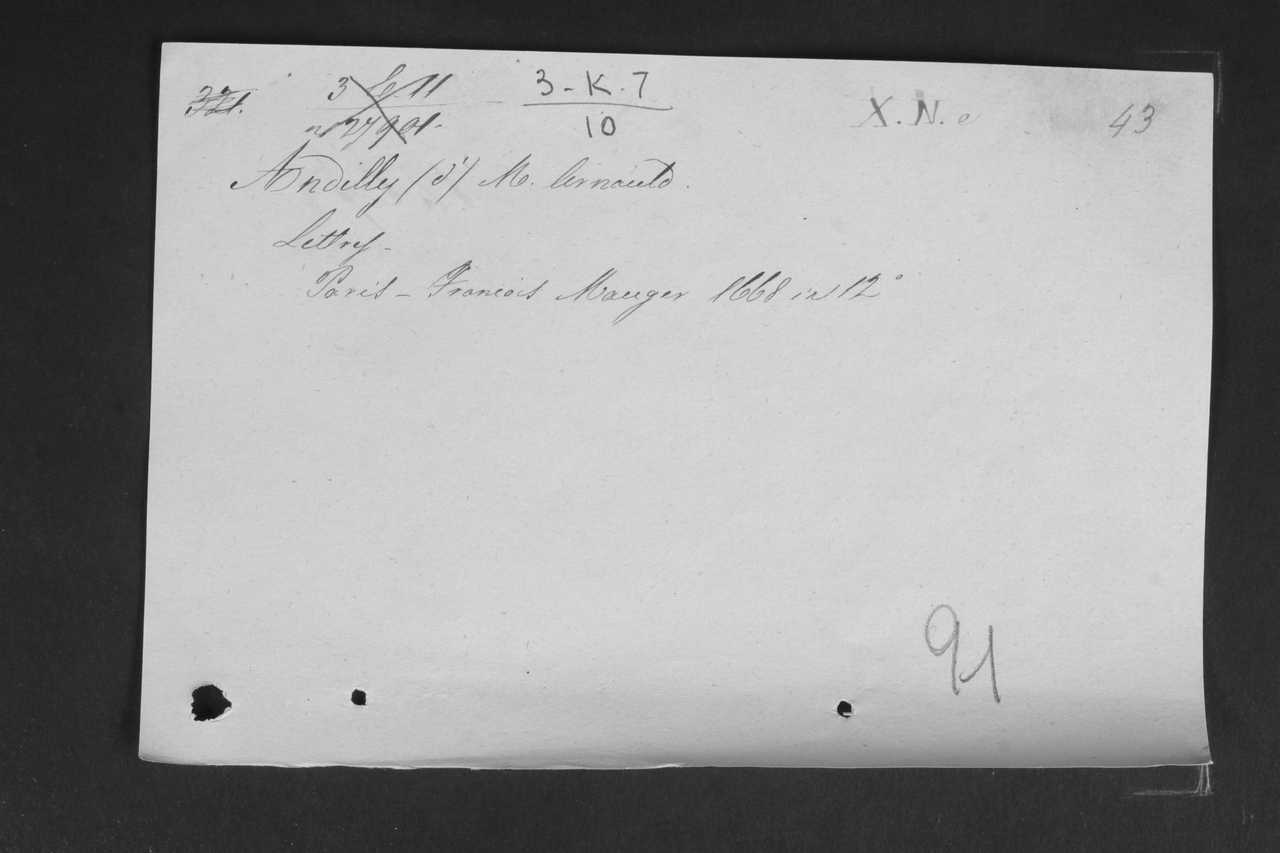 321. 3 C 11 3-K.7 X.N.e 43
nº 27901. 10
Andilly (d') M. Arnauld.
Lettres -
Paris - Francois Mauger 1668 in 12°
91